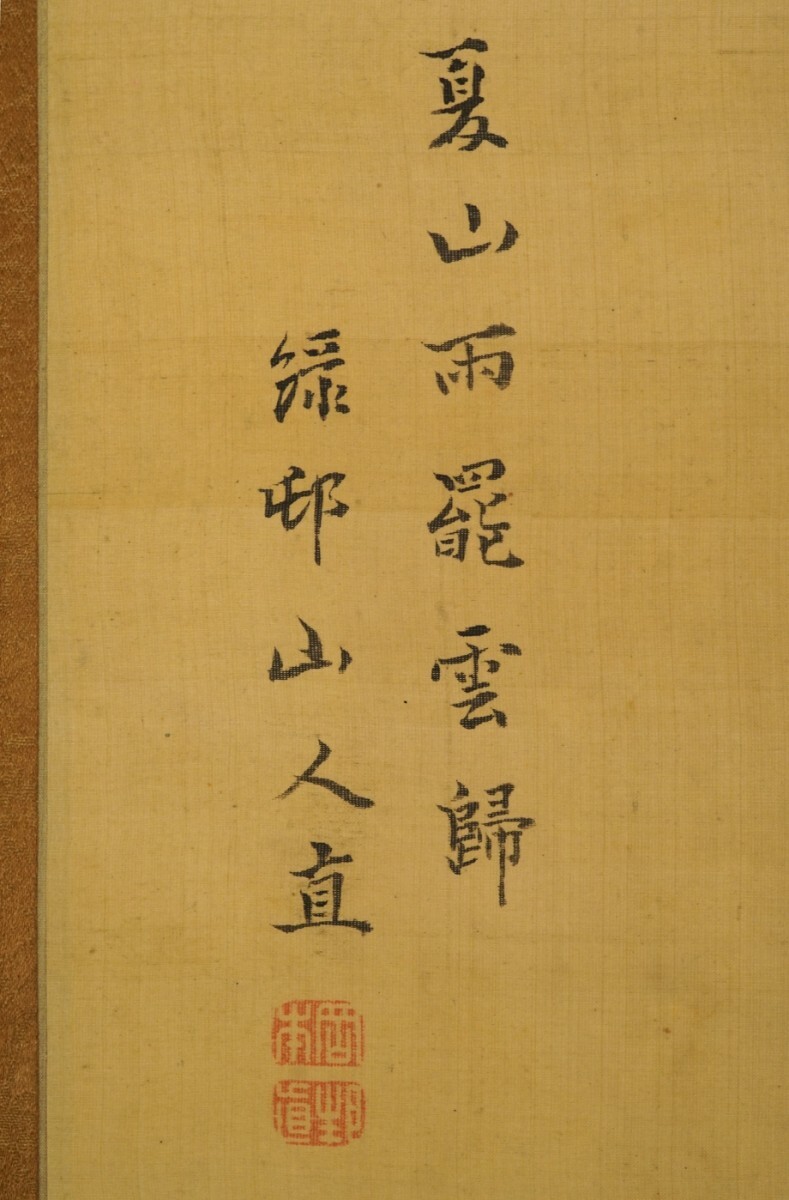 夏山雨罷雲歸
綠邨山人直